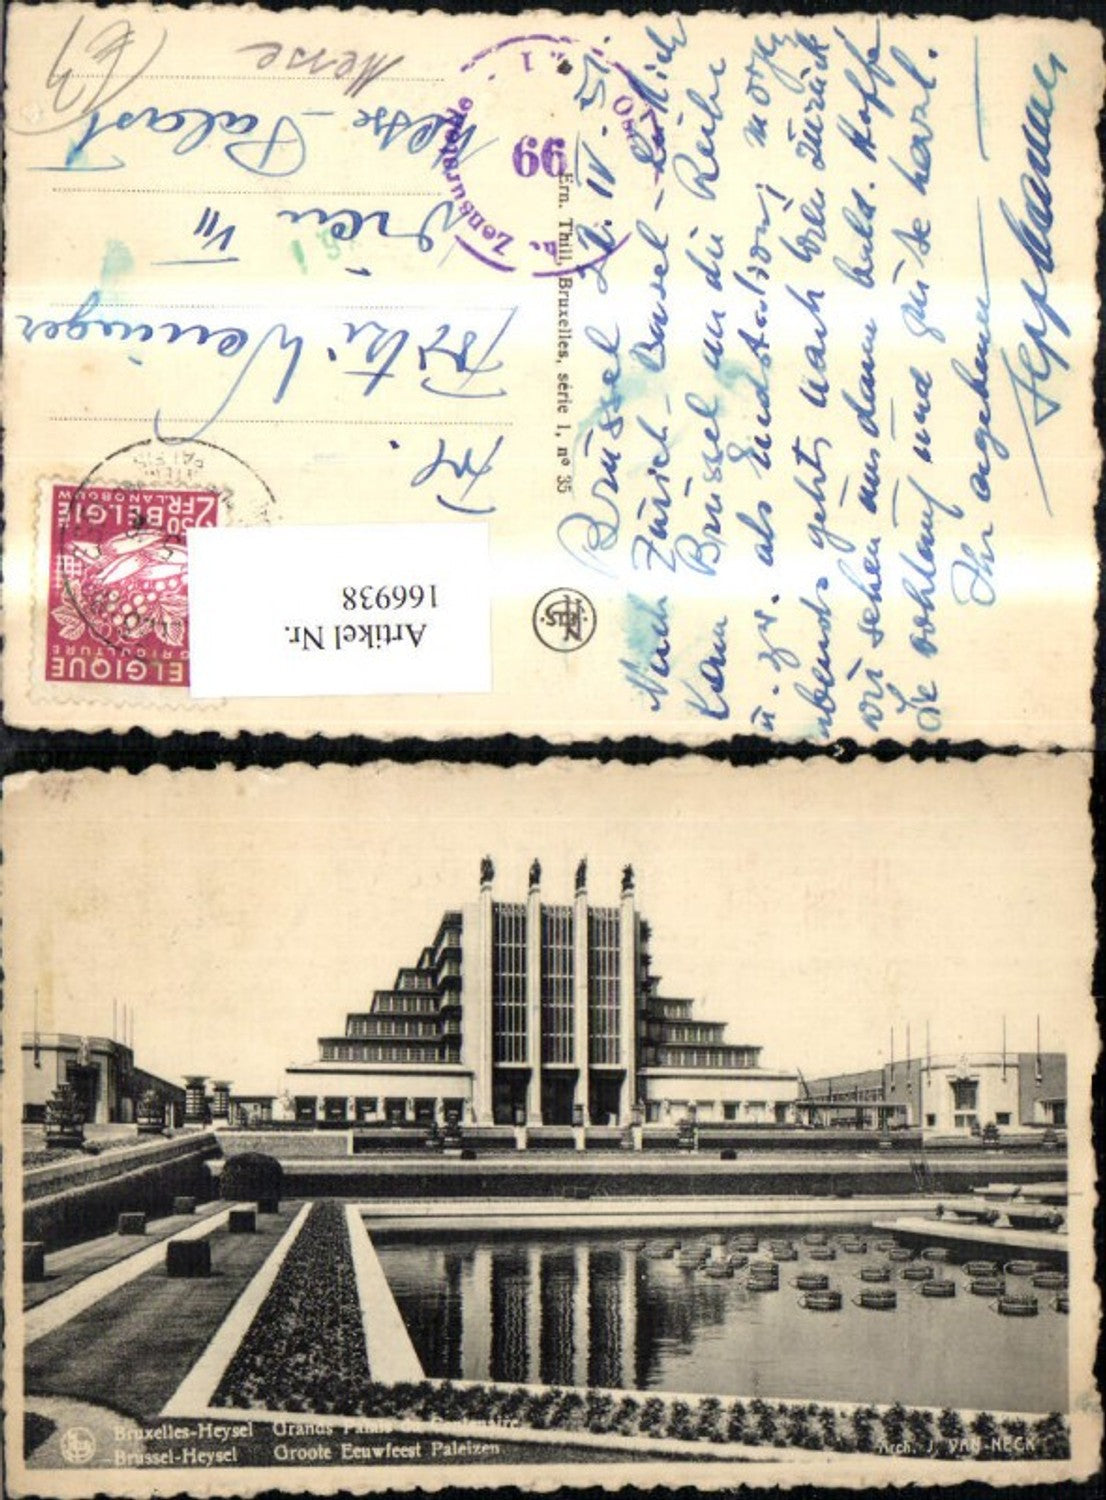 Brüssel 22. IV. 51.
Nach Zürich - Basel - Lüttich
kam Brüssel an die Reihe
u. zw. als Endstation; morgen
abends geht's nach Wien zurück
wir sehen uns dann bald. Hoffe
Sie wohlauf und grüsse herzl.
Ihr ergebener
Ern. Thill, Bruxelles, série 1, nº 35
NELS
Zensurstelle
99
Frl.
Fritzi Weninger
Wien VII
Messe-Palast
Messe
BELGIQUE
BELGIE
LANDBOUW
2 FR 50
Artikel Nr.
166938
Bruxelles-Heysel Grands Palais du Centenaire
Brussel-Heysel Groote Eeuwfeest Paleizen
Arch. J. VAN NECK